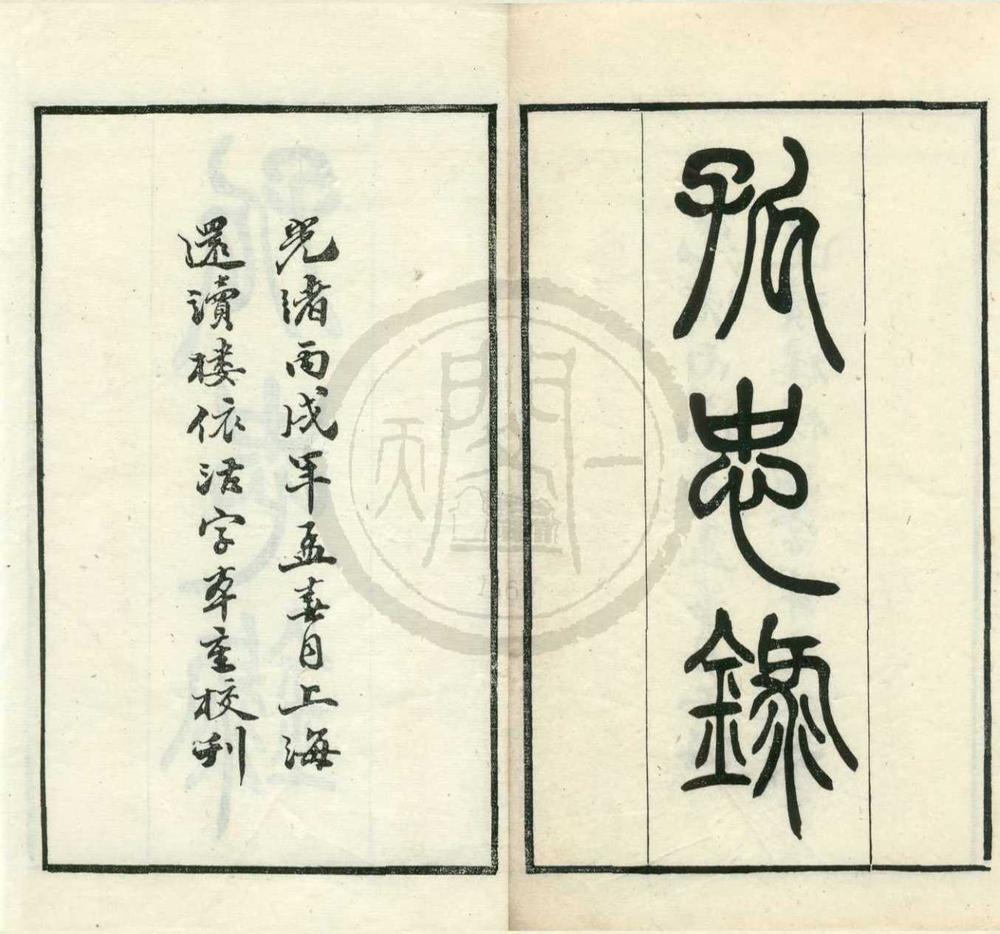 孤忠錄
光緒丙戌年孟春月上海
還讀樓依活字本重校刊